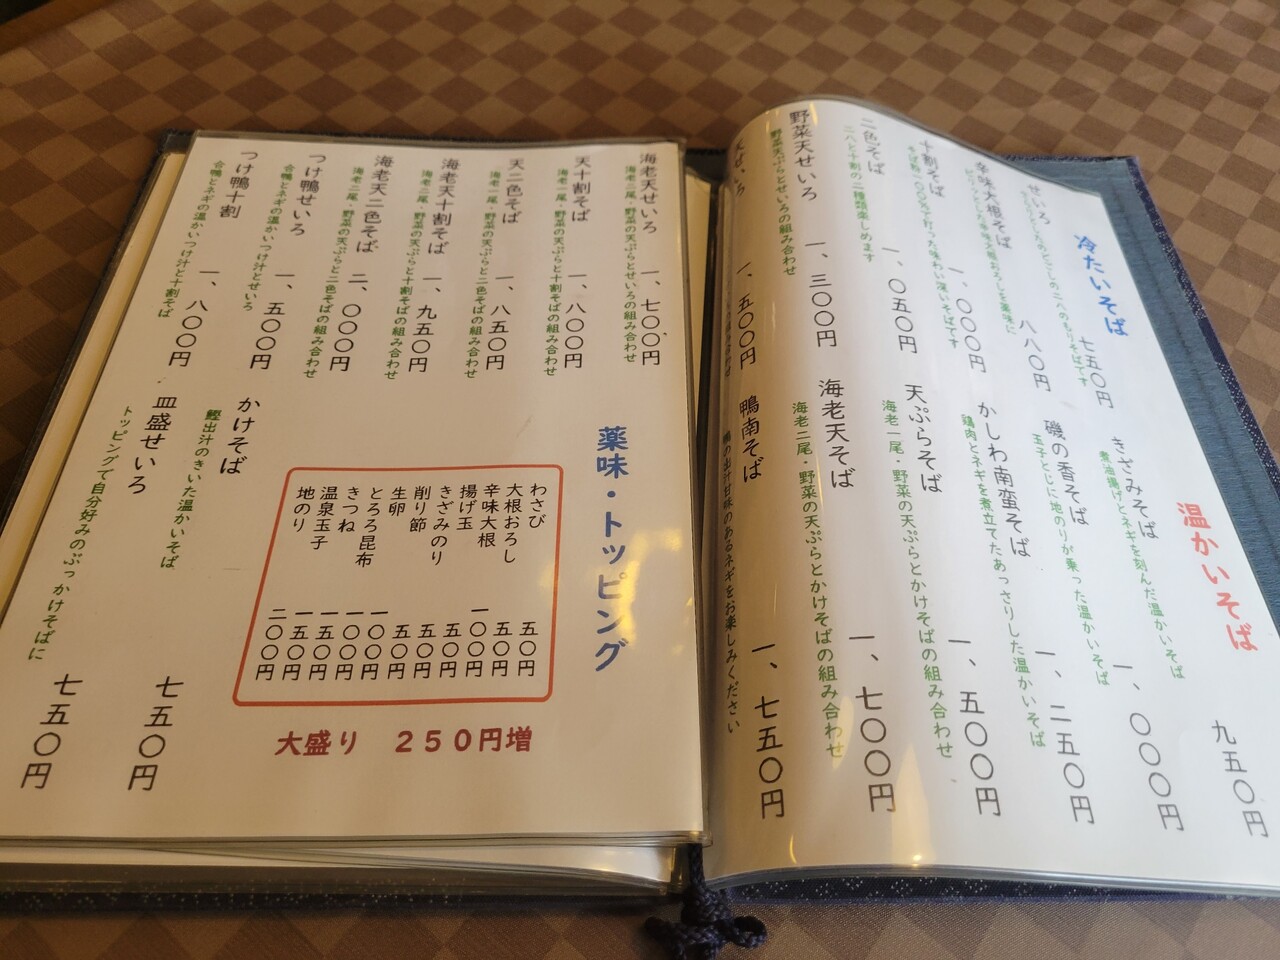 冷たいそば
せいろ 七五〇円
辛味大根そば 八八〇円
十割そば 一、〇〇〇円
そば粉一〇〇%で打った味わい深いそばです
二色そば 一、〇五〇円
二八と十割の二種類楽しめます
野菜天せいろ 一、三〇〇円
野菜天ぷらとせいろの組み合わせ
天せいろ 一、五〇〇円
温かいそば
九五〇円
きざみそば 一、〇〇〇円
煮油揚げとネギを刻んだ温かいそば
磯の香そば 一、二五〇円
玉子とじに地のりが乗った温かいそば
かしわ南蛮そば 一、五〇〇円
鶏肉とネギを煮立てたあっさりした温かいそば
天ぷらそば 一、七〇〇円
海老一尾・野菜の天ぷらとかけそばの組み合わせ
海老天そば 一、七五〇円
海老二尾・野菜の天ぷらとかけそばの組み合わせ
鴨南そば
鴨の出汁甘味のあるネギをお楽しみください
海老天せいろ 一、七〇〇円
海老二尾・野菜の天ぷらとせいろの組み合わせ
天十割そば 一、八〇〇円
海老一尾・野菜の天ぷらと十割そばの組み合わせ
天二色そば 一、八五〇円
海老一尾・野菜の天ぷらと二色そばの組み合わせ
海老天十割そば 一、九五〇円
海老二尾・野菜の天ぷらと十割そばの組み合わせ
海老天二色そば 二、〇〇〇円
海老二尾・野菜の天ぷらと二色そばの組み合わせ
つけ鴨せいろ 一、五〇〇円
合鴨とネギの温かいつけ汁とせいろ
つけ鴨十割 一、八〇〇円
合鴨とネギの温かいつけ汁と十割そば
薬味・トッピング
わさび 五〇円
大根おろし 五〇円
辛味大根 一〇〇円
揚げ玉 五〇円
きざみのり 五〇円
削り節 五〇円
生卵 一〇〇円
とろろ昆布 一〇〇円
きつね 一五〇円
温泉玉子 一五〇円
地のり 二〇〇円
大盛り ２５０円増
かけそば 七五〇円
鰹出汁のきいた温かいそば
皿盛せいろ 七五〇円
トッピングで自分好みのぶっかけそばに